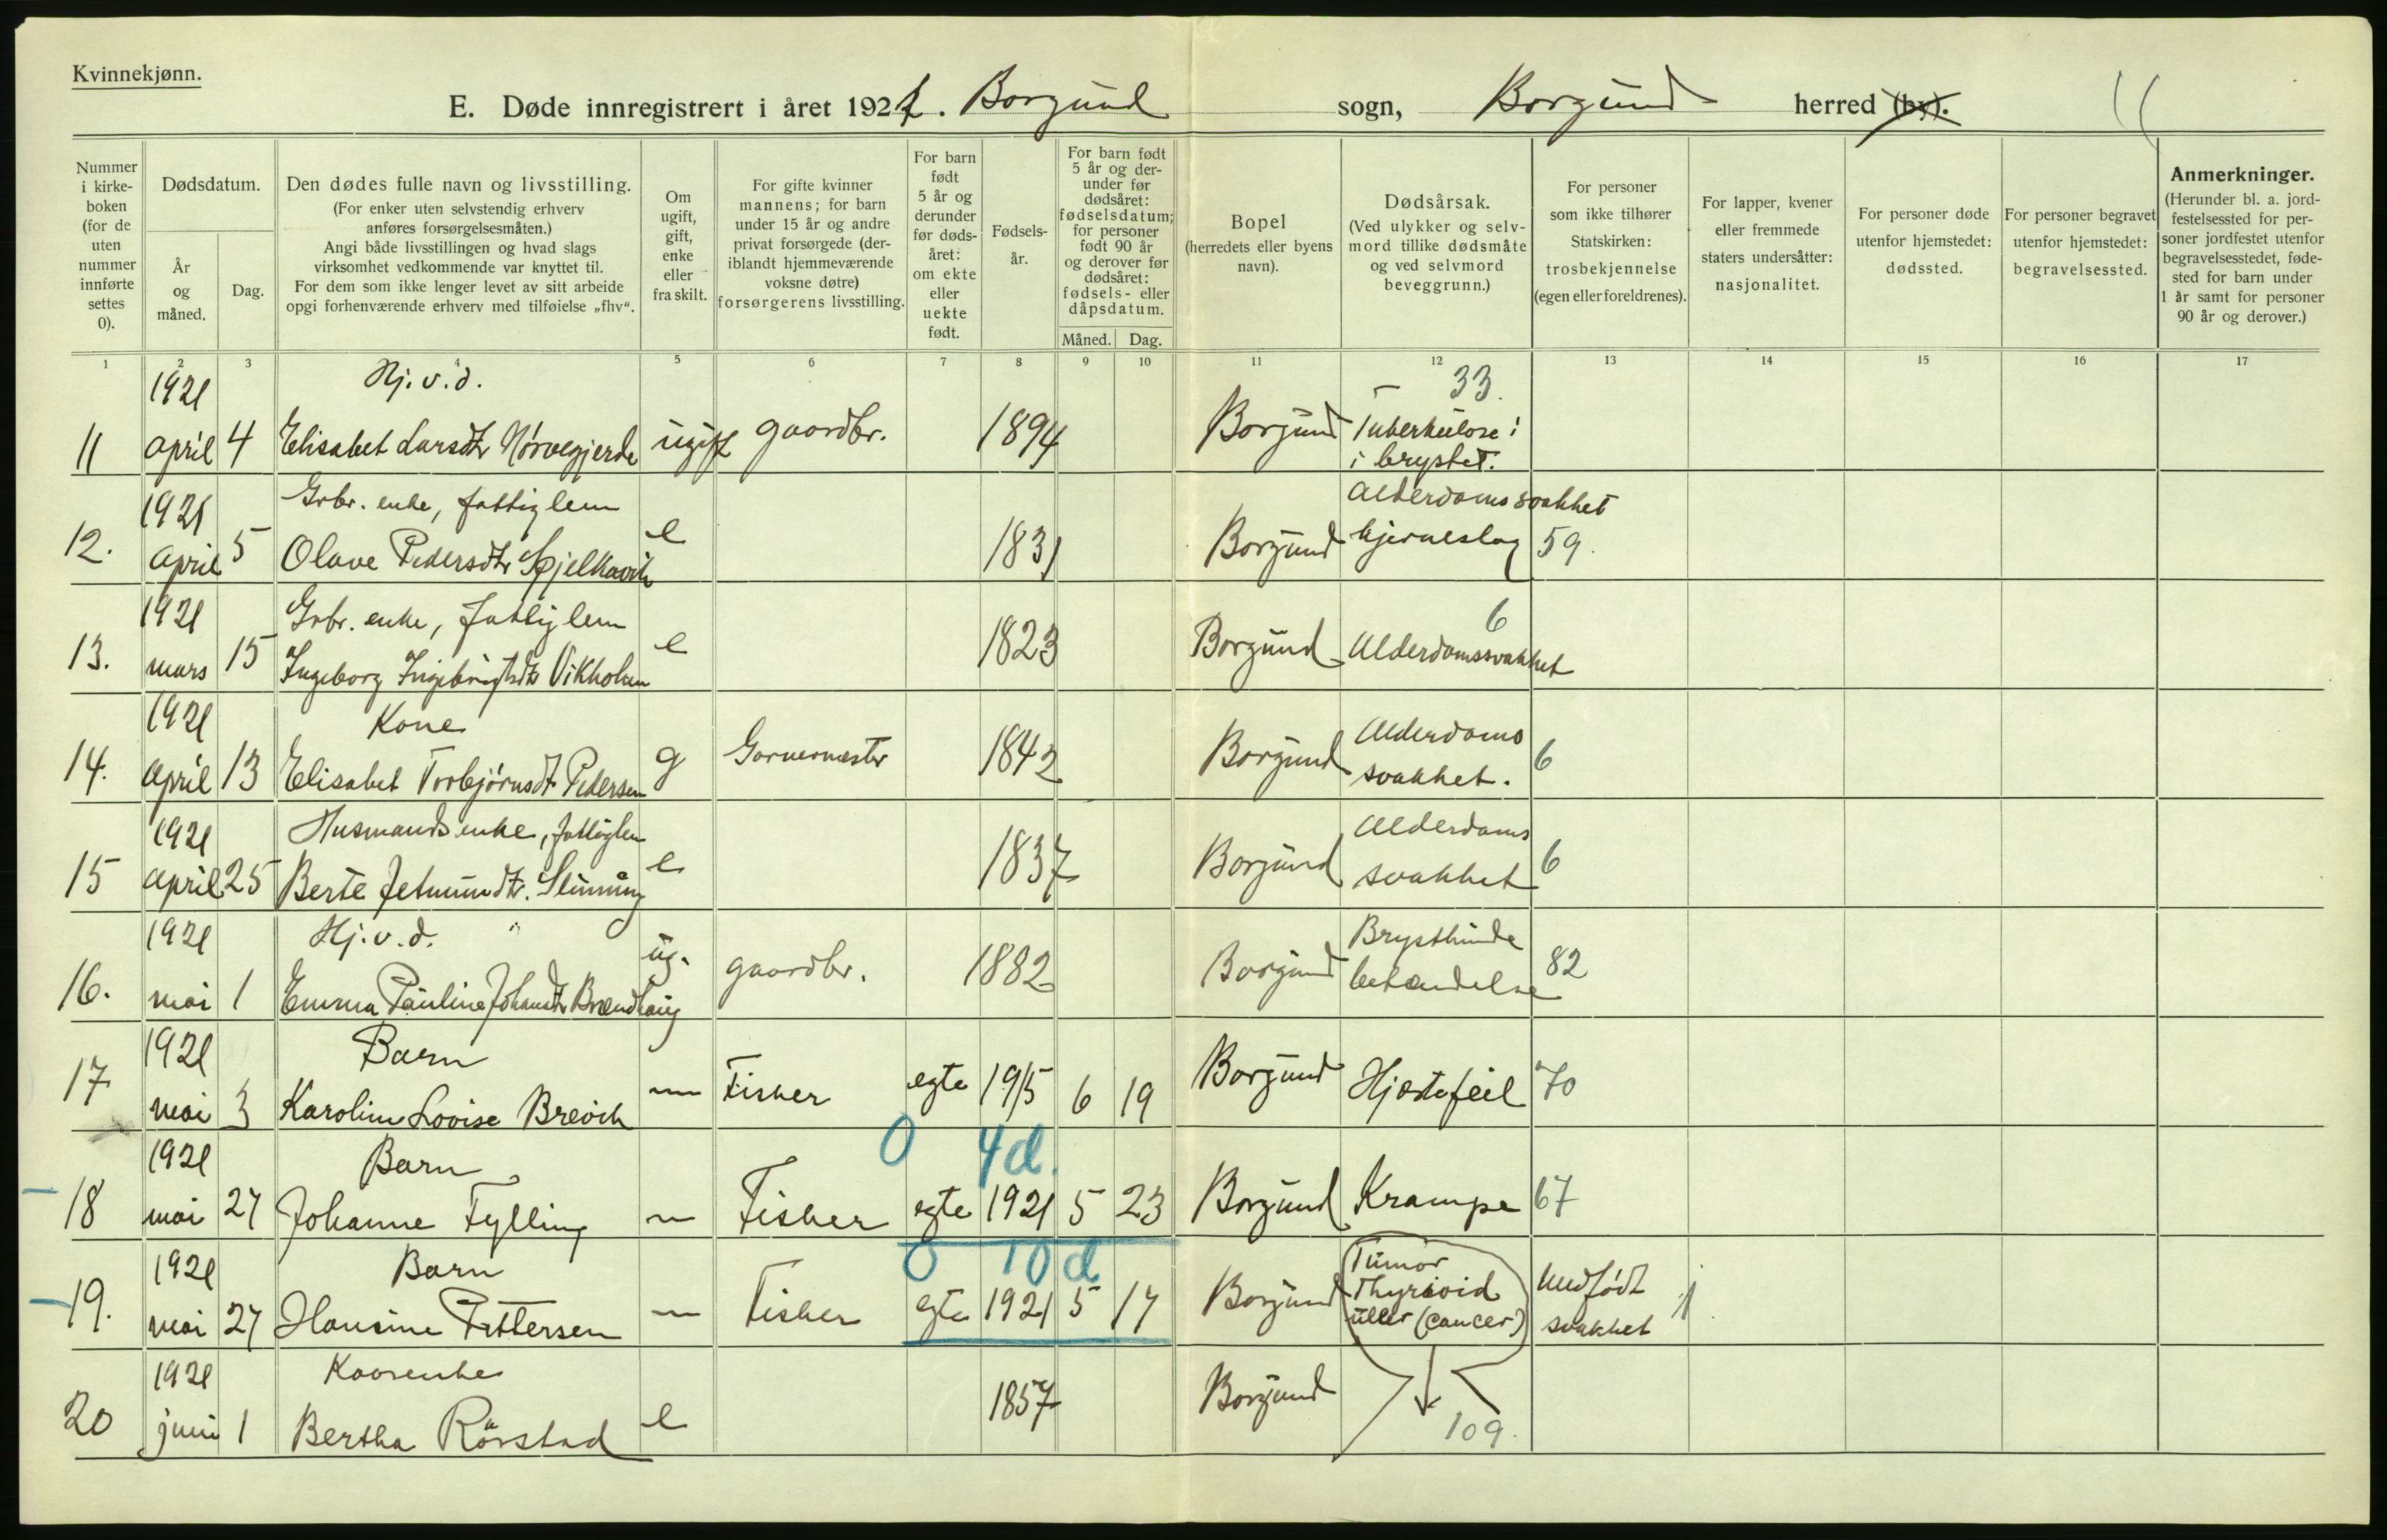 Kvinnekjønn.
E. Døde innregistrert i året 1921. Borgund sogn, Borgund herred (by). 11
Nummer i kirkeboken (for de uten nummer innførte settes 0).
Dødsdatum.
År og måned.
Dag.
Den dødes fulle navn og livsstilling.
(For enker uten selvstendig erhverv anføres forsørgelsesmåten.)
Angi både livsstillingen og hvad slags virksomhet vedkommende var knyttet til.
For dem som ikke lenger levet av sitt arbeide opgi forhenværende erhverv med tilføielse „fhv“.
Om ugift, gift, enke eller fraskilt.
For gifte kvinner mannens; for barn under 15 år og andre privat forsørgede (deriblandt hjemmeværende voksne døtre) forsørgerens livsstilling.
For barn født 5 år og derunder før dødsåret: om ekte eller uekte født.
Fødselsår.
For barn født 5 år og derunder før dødsåret: fødselsdatum; for personer født 90 år og derover før dødsåret: fødsels- eller dåpsdatum.
Måned. Dag.
Bopel (herredets eller byens navn).
Dødsårsak.
(Ved ulykker og selvmord tillike dødsmåte og ved selvmord beveggrunn.)
For personer som ikke tilhører Statskirken: trosbekjennelse (egen eller foreldrenes).
For lapper, kvener eller fremmede staters undersåtter: nasjonalitet.
For personer døde utenfor hjemstedet: dødssted.
For personer begravet utenfor hjemstedet: begravelsessted.
Anmerkninger.
(Herunder bl. a. jordfestelsessted for personer jordfestet utenfor begravelsesstedet, fødested for barn under 1 år samt for personer 90 år og derover.)
1 2 3 4 5 6 7 8 9 10 11 12 13 14 15 16 17
1921 Hj. v. d. 33.
11 april 4 Elisabet Larsdtr Nørvegjerde ugift gaardbr. 1894 Borgund Tuberkulose i
i brystet.
1921 Grbr. enke, fattiglem Alderdomssvakhet
12. april 5 Olave Pedersdtr Spjelkavik e 1831 Borgund hjerneslag 59.
1921 Grbr. enke, fattiglem 6
13. mars 15 Ingeborg Ingebrigtsdtr Vikholen e 1823 Borgund Alderdomssvakhet
1921 Kone Alderdoms
14. april 13 Elisabet Torbjørnsdt Pedersen g Garvermester 1842 Borgund svakhet. 6
1921 Husmandsenke, fattiglem Alderdoms
15 april 25 Berte Jetmundtr. Slinning e 1837 Borgund svakhet 6
1921 Hj. v. d. ug. Brysthinde
16. mai 1 Emma Pauline Johansdtr Brændhaug gaardbr. 1882 Borgund betændelse 82
1921 Barn
17 mai 3 Karoline Lovise Breivik — Fisker egte 1915 6 19 Borgund Hjertefeil 70
1921 Barn 0 4d.
18 mai 27 Johanne Fylling — Fisker egte 1921 5 23 Borgund Krampe 67
1921 Barn 0 10d Tumor Medfødt
19. mai 27 Hansine Pettersen — Fisker egte 1921 5 17 Borgund Thyrioid (cancer) svakhet
1921 Kaarenke
20 juni 1 Bertha Rörstad e 1857 Borgund 109.